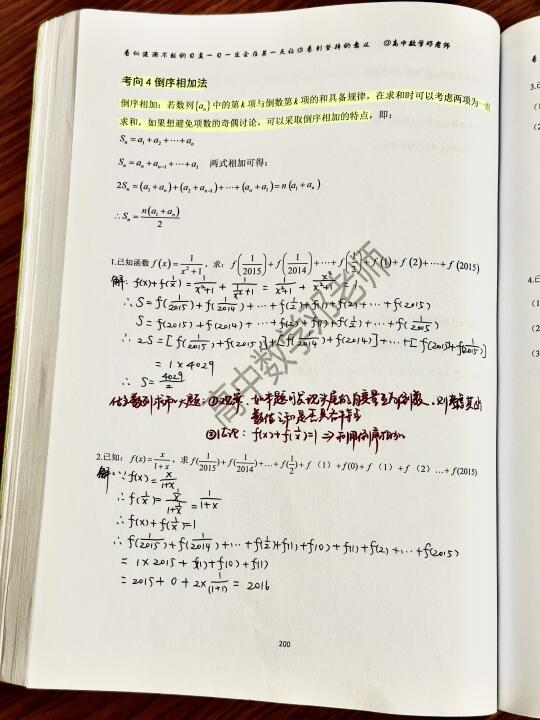 看似波澜不惊的日复一日一定会在某一天让你看到坚持的意义 @高中数学邓老师
考向 4 倒序相加法
倒序相加：若数列{aₙ}中的第 k 项与倒数第 k 项的和具备规律，在求和时可以考虑两项为一组
求和，如果想避免项数的奇偶讨论，可以采取倒序相加的特点，即：
Sₙ = a₁ + a₂ + ⋯ + aₙ
Sₙ = aₙ + aₙ₋₁ + ⋯ + a₁ 两式相加可得：
2Sₙ = (a₁ + aₙ) + (a₂ + aₙ₋₁) + ⋯ + (aₙ + a₁) = n(a₁ + aₙ)
∴ Sₙ = n(a₁ + aₙ)/2
1.已知函数 f(x) = 1/(x²+1)，求：f(1/2015) + f(1/2014) + ⋯ + f(1/2) + f(1) + f(2) + ⋯ + f(2015)
解：f(x) + f(1/x) = 1/(x²+1) + 1/(1/x²+1) = 1/(x²+1) + x²/(x²+1) = 1
∴ S = f(1/2015) + f(1/2014) + ⋯ + f(1/2) + f(1) + f(2) + ⋯ + f(2015)
S = f(2015) + f(2014) + ⋯ + f(2) + f(1) + f(1/2) + ⋯ + f(1/2015)
∴ 2S = [f(1/2015) + f(2015)] + [f(1/2014) + f(2014)] + ⋯ + [f(2015) + f(1/2015)]
= 1×4029
∴ S = 4029/2
数列求和大题：①观察，如本题可发现头尾的自变量互为倒数，则
数值之和是否具有特点
②结论：f(x) + f(1/x) = 1 ⇒ 利用倒序相加
2.已知：f(x) = x/(1+x)，求 f(1/2015) + f(1/2014) + … + f(1/2) + f（1）+ f(0) + f（1）+ f（2）… + f(2015)
解：∵ f(x) = x/(1+x)
∴ f(1/x) = (1/x)/(1+1/x) = 1/(1+x)
∴ f(x) + f(1/x) = 1
∴ f(1/2015) + f(1/2014) + ⋯ + f(1/2) + f(1) + f(0) + f(1) + f(2) + ⋯ + f(2015)
= 1×2015 + f(1) + f(0) + f(1)
= 2015 + 0 + 2×1/(1+1) = 2016
高中数学邓老师
200